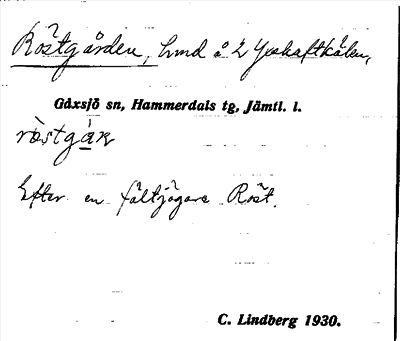 Röstgården, hmd å 2 Yxskaftkälen,
Gåxsjö sn, Hammerdals tg, Jämtl. l.
röstgàɴ
Efter en fältjägare Röst.
C. Lindberg 1930.